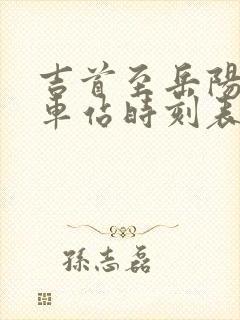 吉首至岳陽
車佔時刻表
孫志磊